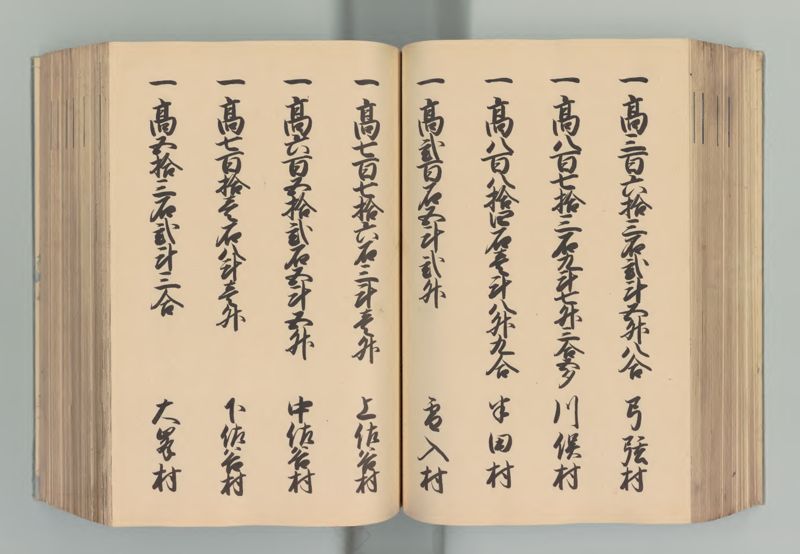 一 高三百六拾三石弐斗五升八合 弓弦村
一 高八百七拾三石九斗七升三合余 川俣村
一 高八百八拾四石壱斗八升九合 半田村
一 高弐百石五斗弐升 雪入村
一 高七百七拾六石三斗壱升 上佐谷村
一 高六百五拾弐石五斗五升 中佐谷村
一 高七百拾壱石八斗壱升 下佐谷村
一 高五拾三石弐斗三合 大峯村